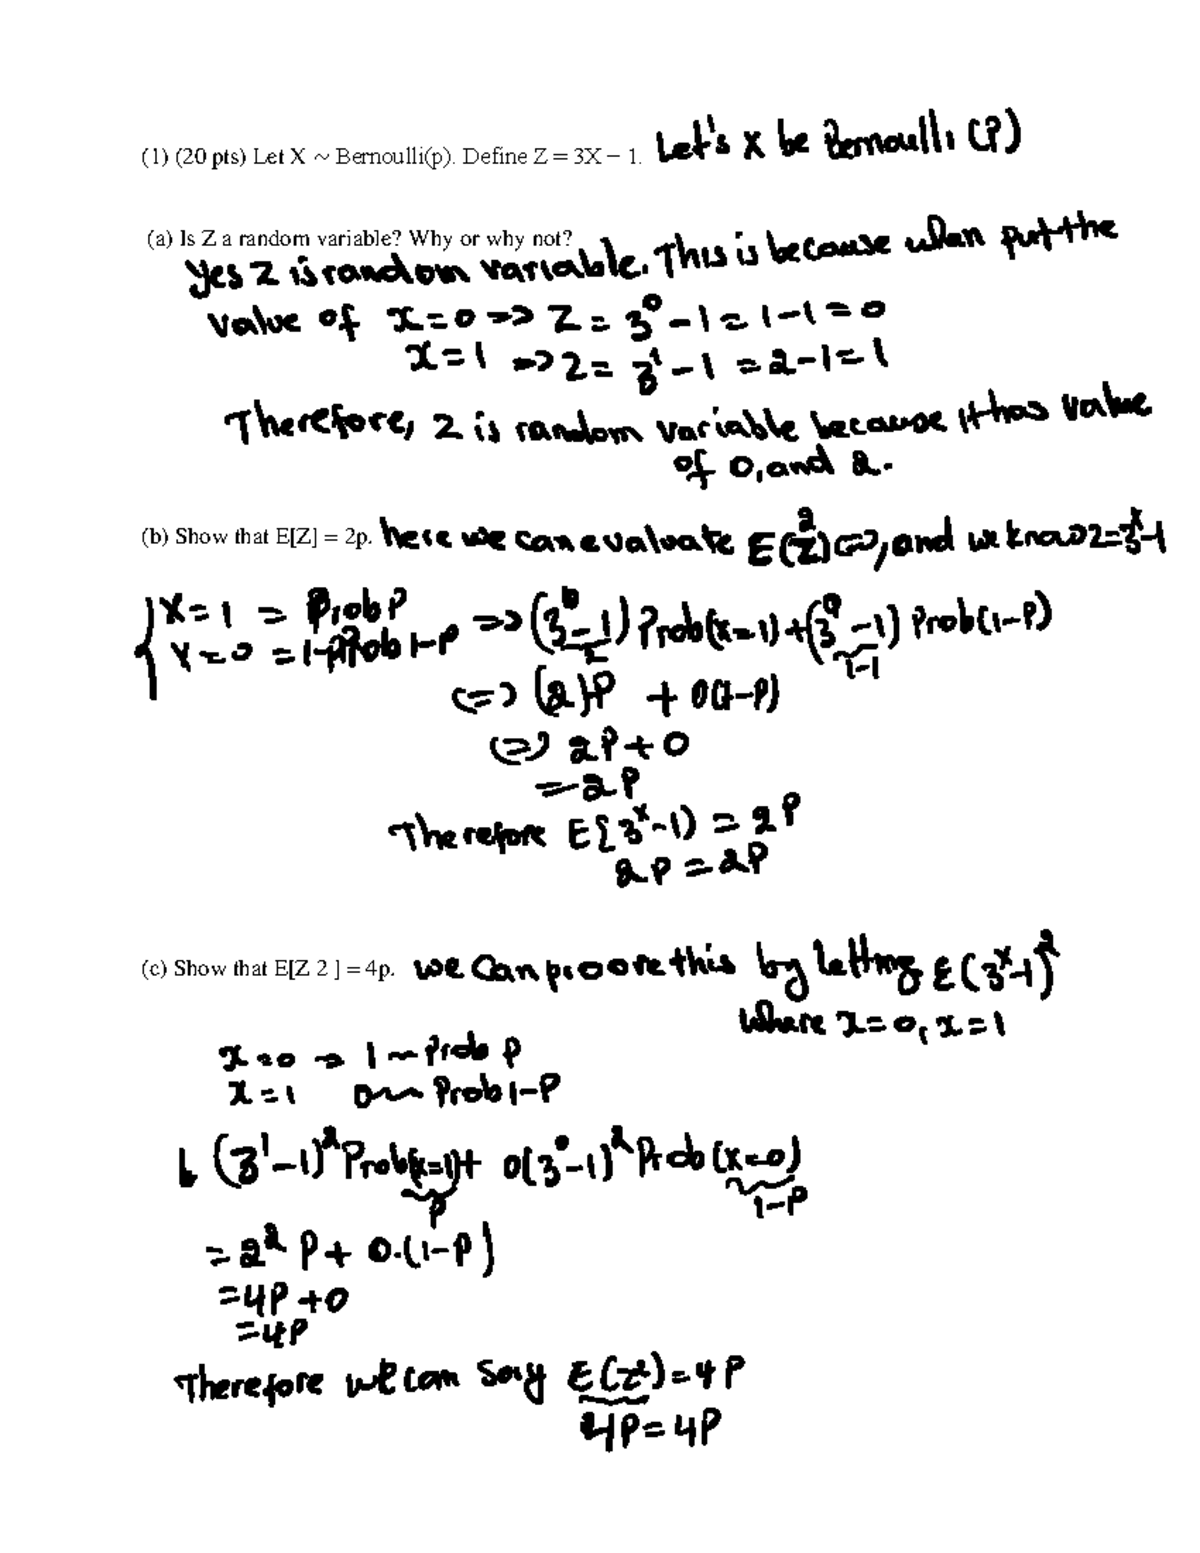 (1) (20 pts) Let X ~ Bernoulli(p). Define Z = 3X − 1. Let's x be Bernoulli (P)
(a) Is Z a random variable? Why or why not?
Yes Z is random variable. This is because when put the
value of x=0 => Z = 3^0 - 1 = 1-1 = 0
x=1 => Z = 3^1 - 1 = 2-1=1
Therefore, Z is random variable because it has value
of 0, and 2.
(b) Show that E[Z] = 2p. here we can evaluate E(Z) <=>, and we know Z=3^x-1
X=1 = Prob P => (3 - 1) Prob(x=1) + (3^0 - 1) Prob(1-P)
X=0 = 1-P Prob 1-P
1-1
<=> (2)P + 0(1-P)
<=> 2P+0
=2P
Therefore E[3^x-1) = 2P
2P = 2P
(c) Show that E[Z 2 ] = 4p. we can proove this by letting E(3^x-1)^2
where x=0, x=1
x=0 → 1 ~ Prob p
x=1 0 ~ Prob 1-P
(3^1-1)^2 Prob(x=1)+ 0(3^0-1)^2 Prob (x=0)
P 1-P
= 2^2 P + 0.(1-P)
=4P+0
=4P
Therefore we can say E(Z^2)=4P
4P=4P